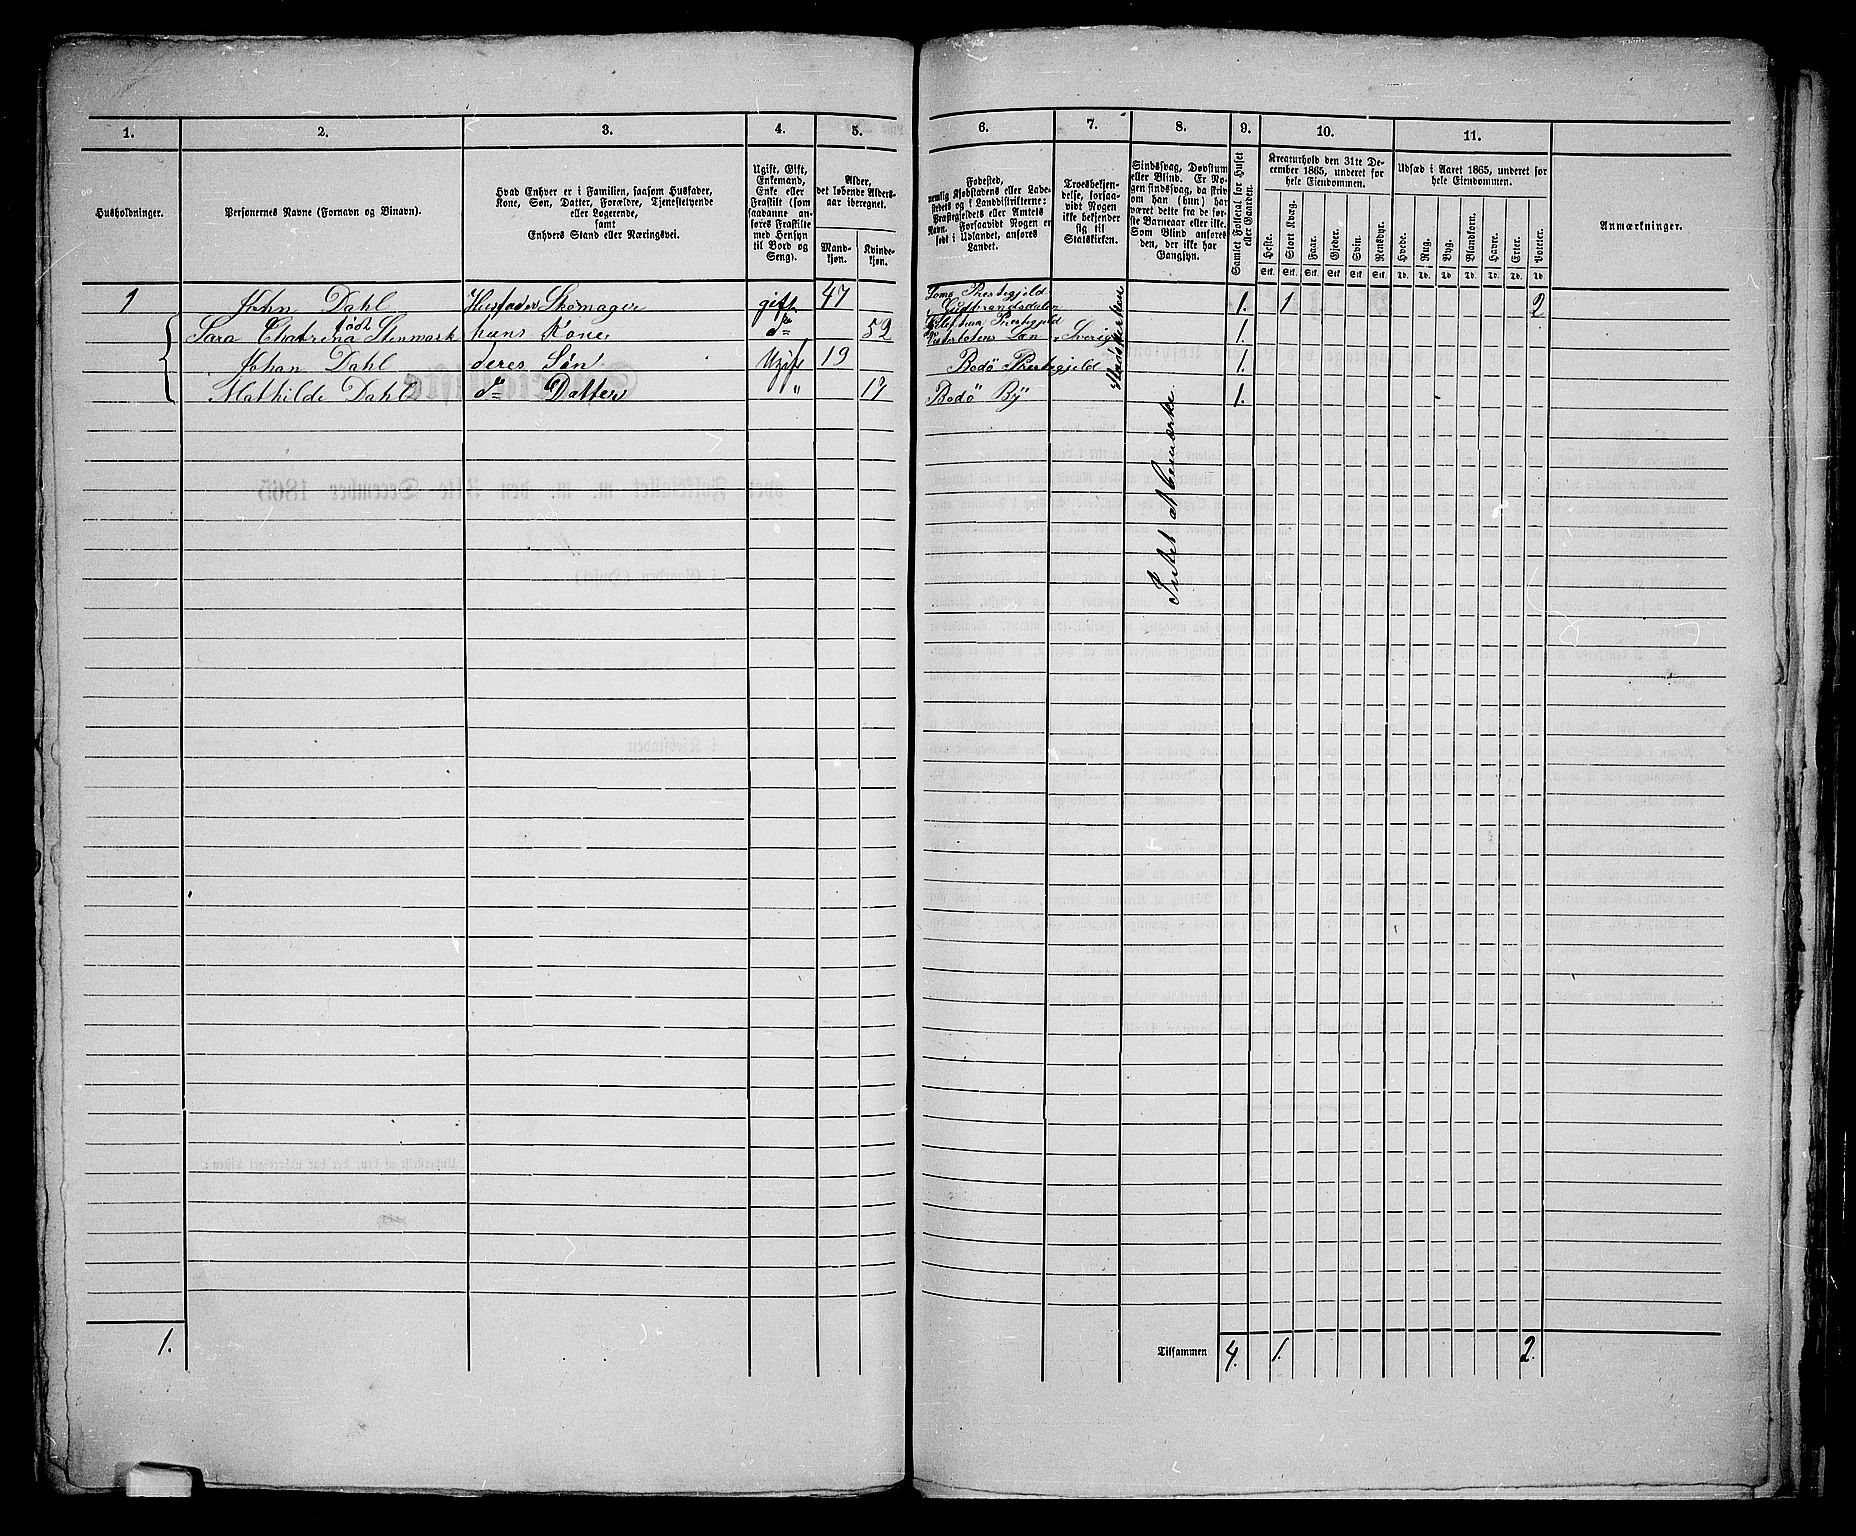 1. 2. 3. 4. 5. 6. 7. 8. 9. 10. 11.
Husholdninger.
Personernes Navne (Fornavn og Binavn).
Hvad Enhver er i Familien, saasom Husfader,
Kone, Søn, Datter, Forældre, Tjenestetyende
eller Logerende,
samt
Enhvers Stand eller Næringsvei.
Ugift, Gift,
Enkemand,
Enke eller
Fraskilt (som
saadanne an-
føres Fraskilte
med Hensyn
til Bord og
Seng).
Alder,
det løbende Alders-
aar iberegnet.
Mand-
kjøn.
Kvinde-
kjøn.
Fødested,
nemlig Kjøbstadens eller Lade-
stedets og i Landdistrikterne:
Præstegjeldets eller Amtets
Navn. Forsaavidt Nogen er
født i Udlandet, anføres
Landet.
Troesbekjen-
delse, forsaa-
vidt Nogen
ikke bekjender
sig til
Statskirken.
Sindssvag, Døvstum
eller Blind. Er No-
gen sindssvag, da skriv
om han (hun) har
været dette fra de før-
ste Barneaar eller ikke.
Som Blind anføres
den, der ikke har
Gangsyn.
Samlet Folketal for Huset
eller Gaarden.
Kreaturhold den 31te De-
cember 1865, underet for
hele Eiendommen.
Heste. Stort Kvæg. Faar. Gjeder. Svin. Rensdyr.
Stk. Stk. Stk. Stk. Stk. Stk.
Udsæd i Aaret 1865, underet for
hele Eiendommen.
Hvede. Rug. Byg. Blandkorn. Havre. Erter. Poteter.
Td. Td. Td. Td. Td. Td. Td.
Anmærkninger.
1 John Dahl Husfader Skomager gift 47 Loms Prestegjeld Gudbrandsdalen 1. 1 2
Sara Chatrina född Stenmark hans Kone do 52 Prestegjeld Län Sverig 1.
Johan Dahl deres Søn Ugift 19 Bodö Prestegjeld 1.
Mathilde Dahl do Datter " 17 Bodö By 1.
Statskirken
Intet at bemærke.
1. Tilsammen 4. 1. 2.